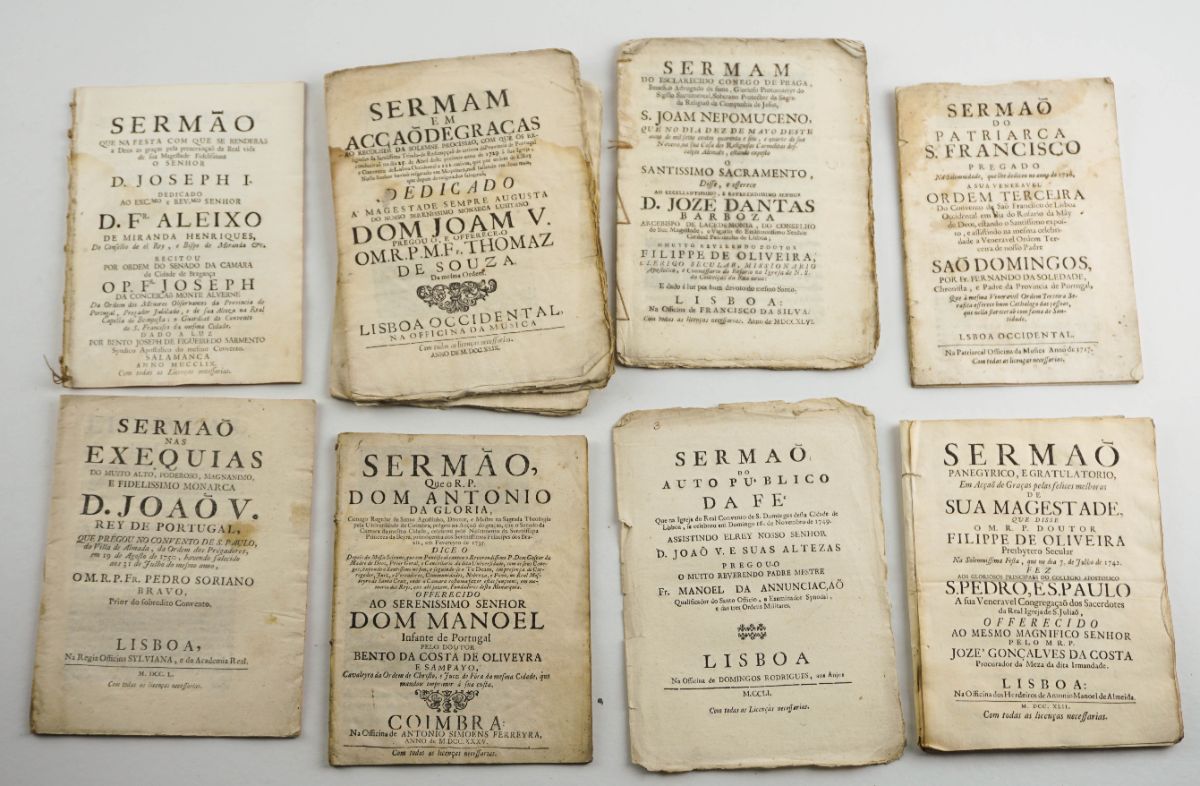 SERMÃO
QUE NA FESTA COM QUE SE RENDERAÕ
a Deos as graças pela preservaçaõ da Real vida
de sua Magestade Fidelissima
O SENHOR
D. JOSEPH I.
DEDICADO
AO EXC.MO e REV.MO SENHOR
D. Fr. ALEIXO
DE MIRANDA HENRIQUES,
Do Conselho de el Rey, e Bispo de Miranda &c.
RECITOU
POR ORDEM DO SENADO DA CAMARA
da Cidade de Bragança
O P. Fr. JOSEPH
DA CONCEIÇAÕ MONTE ALVERNE
Da Ordem dos Menores Observantes da Provincia de
Portugal, Prégador Jubilado, e de sua Alteza na Real
Capella da Bemposta; e Guardiaõ do Convento
de S. Francisco da mesma Cidade.
DADO A LUZ
POR BENTO JOSEPH DE FIGUEIREDO SARMENTO
Syndico Apostolico do mesmo Convento.
SALAMANCA
ANNO MDCCLIX.
Com todas as Licenças necessarias.
SERMAM
EM
ACÇAÕ DE GRAÇAS
AO RECOLHER DA SOLEMNE PROCISSAÕ, COM QUE OS RE-
DEDICADO
A' MAGESTADE SEMPRE AUGUSTA
DO NOSSO SERENISSIMO MONARCA LUSITANO
DOM JOAM V.
PREGOU O, E OFFERECE O
O M. R. P. M. Fr. THOMAZ
DE SOUZA
Da mesma Ordem.
LISBOA OCCIDENTAL,
NA OFFICINA DA MUSICA
Com todas as licenças necessarias.
ANNO DE M. DCC. XXIX.
SERMAM
DO ESCLARECIDO CONEGO DE PRAGA,
S. JOAM NEPOMUCENO,
QUE NO DIA DEZ DE MAYO DESTE
O
SANTISSIMO SACRAMENTO,
Disse, e offerece
AO EXCELLENTISSIMO, E REVERENDISSIMO SENHOR
D. JOZE DANTAS
BARBOZA
ARCEBISPO DE LACEDEMONIA, DO CONSELHO
de Sua Magestade, e Vigario do Eminentissimo Senhor
Cardeal Patriarcha de Lisboa,
O MUITO REVERENDO DOUTOR
FILIPPE DE OLIVEIRA,
CLERIGO SECULAR, MISSIONARIO
E dado á luz por hum devoto do mesmo Santo.
LISBOA:
Na Officina de FRANCISCO DA SILVA.
Com todas as licenças necessarias. Anno de MDCCXLVI.
SERMAÕ
DO
PATRIARCA
S. FRANCISCO
PREGADO
Na Solemnidade, que lhe dedicou no anno de 1726,
A SUA VENERAVEL
ORDEM TERCEIRA
Do Convento de Saõ Francisco de Lisboa
Occidental em dia do Rosario da Mãy
de Deos, estando o Santissimo expos-
to, e assistindo na mesma celebri-
dade a Veneravel Ordem Ter-
ceira de nosso Padre
SAÕ DOMINGOS,
POR Fr. FERNANDO DA SOLEDADE,
Chronista, e Padre da Provincia de Portugal,
LSBOA OCCIDENTAL,
Na Patriarcal Officina da Musica Anno de 1727.
Com todas as licenças necessarias.
SERMAÕ
NAS
EXEQUIAS
DO MUITO ALTO, PODEROSO, MAGNANIMO,
E FIDELISSIMO MONARCA
D. JOAÕ V.
REY DE PORTUGAL,
QUE PREGOU NO CONVENTO DE S. PAULO,
da Villa de Almada, da Ordem dos Prégadores,
em 19 de Agosto de 1750, havendo falecido
aos 31 de Julho do mesmo anno,
O M. R. P. Fr. PEDRO SORIANO
BRAVO,
Prior do sobredito Convento.
LISBOA,
Na Regia Officina SYLVIANA, e da Academia Real.
M. DCC. L.
Com todas as licenças necessarias.
SERMÃO,
Que o R. P.
DOM ANTONIO
DA GLORIA,
DICE O
OFFERECIDO
AO SERENISSIMO SENHOR
DOM MANOEL
Infante de Portugal
PELO DOUTOR
BENTO DA COSTA DE OLIVEYRA
E SAMPAYO,
Cavaleyro da Ordem de Christo, e Juiz de Fóra da mesma Cidade, que
mandou imprimir á sua custa.
COIMBRA:
Na Officina de ANTONIO SIMOENS FERREYRA,
ANNO de M.DCC.XXXV.
Com todas as licenças necessarias.
3
SERMAÕ,
DO
AUTO PUBLICO
DA FE'
Que na Igreja do Real Convento de S. Domingos desta Cidade de
Lisboa, se celebrou em Domingo 16. de Novembro de 1749.
ASSISTINDO ELREY NOSSO SENHOR
D. JOAÕ V. E SUAS ALTEZAS
PREGOU-O
O MUITO REVERENDO PADRE MESTRE
Fr. MANOEL DA ANNUNCIAÇAÕ
Qualificador do Santo Officio, e Examinador Synodal,
e das tres Ordens Militares.
LISBOA
Na Officina de DOMINGOS RODRIGUES, aos Anjos
M.CCLI.
Com todas as Licenças necessarias.
SERMAÕ
PANEGYRICO, E GRATULATORIO,
Em Acçaõ de Graças pelas felices melhoras
DE
SUA MAGESTADE,
QUE DISSE
O M. R. P. DOUTOR
FILIPPE DE OLIVEIRA
Presbytero Secular
Na Solemnissima Festa, que no dia 7. de Julho de 1742.
FEZ
AOS GLORIOSOS PRINCIPES DO COLLEGIO APOSTOLICO
S. PEDRO, E S. PAULO
A sua Veneravel Congregaçaõ dos Sacerdotes
da Real Igreja de S. Juliaõ,
OFFERECIDO
AO MESMO MAGNIFICO SENHOR
PELO M. R. P.
JOZE' GONÇALVES DA COSTA
Procurador da Meza da dita Irmandade.
LISBOA:
Na Officina dos Herdeiros de Antonio Manoel de Almeida.
M. DCC. XLII.
Com todas as licenças necessarias.